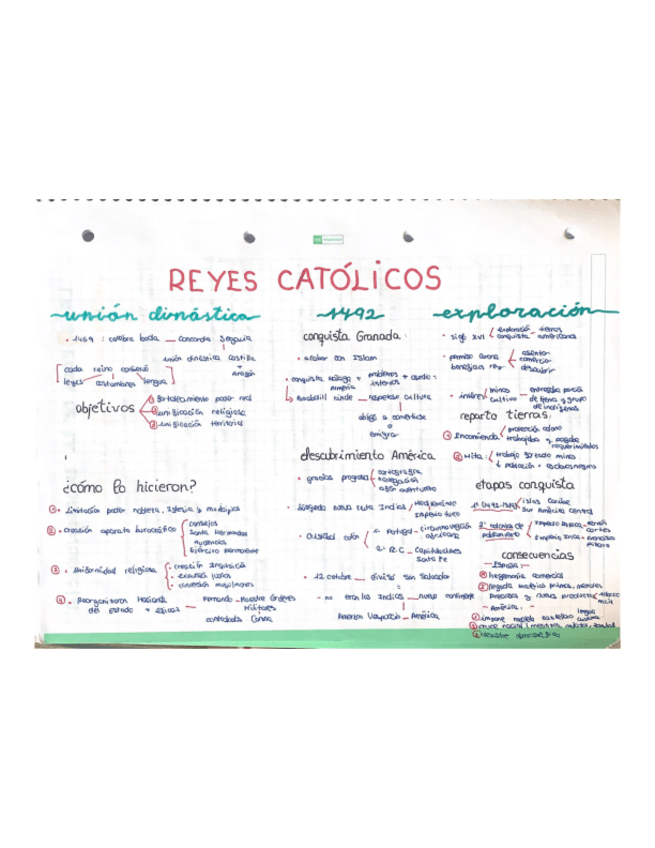 REYES CATÓLICOS
unión dinástica
1469 : celebra boda — concordia Segovia
unión dinástica castilla + Aragón
cada reino conservó
leyes costumbres lengua
objetivos
① fortalecimiento poder real
② unificación religiosa
③ unificación territorial
¿cómo lo hicieron?
① • Limitación poder nobleza, Iglesia y municipios
② • creación aparato burocrático
consejos
Santa Hermandad
Audiencias
Ejército permanente
③ • Uniformidad religiosa
• creación inquisición
• expulsión judíos
• conversión musulmanes
④ • Reorganizaron Hacienda
del estado +
Fernando — Maestre órdenes
Militares
controladas Corona
1492
conquista Granada:
• acabar con Islam
• conquista Málaga + Almería
problemas internos + asedio =
Boabdil rinde — respetase cultura
obligó a convertirse
o
emigrar
descubrimiento América
• gracias progreso
cartografía
navegación
afán aventurero
• búsqueda nueva ruta Indias
Mediterráneo
Imperio turco
• Cristóbal colón
1º Portugal — circunnavegación
africana
2º R.C — Capitulaciones
Santa Fe
• 12 octubre — divisó San Salvador
- no eran las Indias — nuevo continente
Américo Vespucio — América
exploración
• siglo XVI
exploración
conquista
tierras
americanas
• permiso corona
beneficios
asentar
comercio
descubrir
• interés
minas
cultivo
entregaba parcela
de tierra y grupo
de indígenas
reparto tierras:
① Encomienda
protección colono
trabajaba y pagaba
requerimientos
② Mita:
trabajo forzado minas
↓ población = esclavos negros
etapas conquista
1ª (1492-1519)
islas Caribe
Sur América Central
2ª
Imperio Azteca — Hernán
Cortés
Imperio Inca — Francisco
Pizarro
consecuencias
— España: —
① hegemonía comercial
② llegada materias primas, metales
preciosos y nuevos productos
tabaco
maíz
- América: -
① impone modelo castellano
lengua
② cruce racial (mestizos, mulatos,
③ desastre demográfico